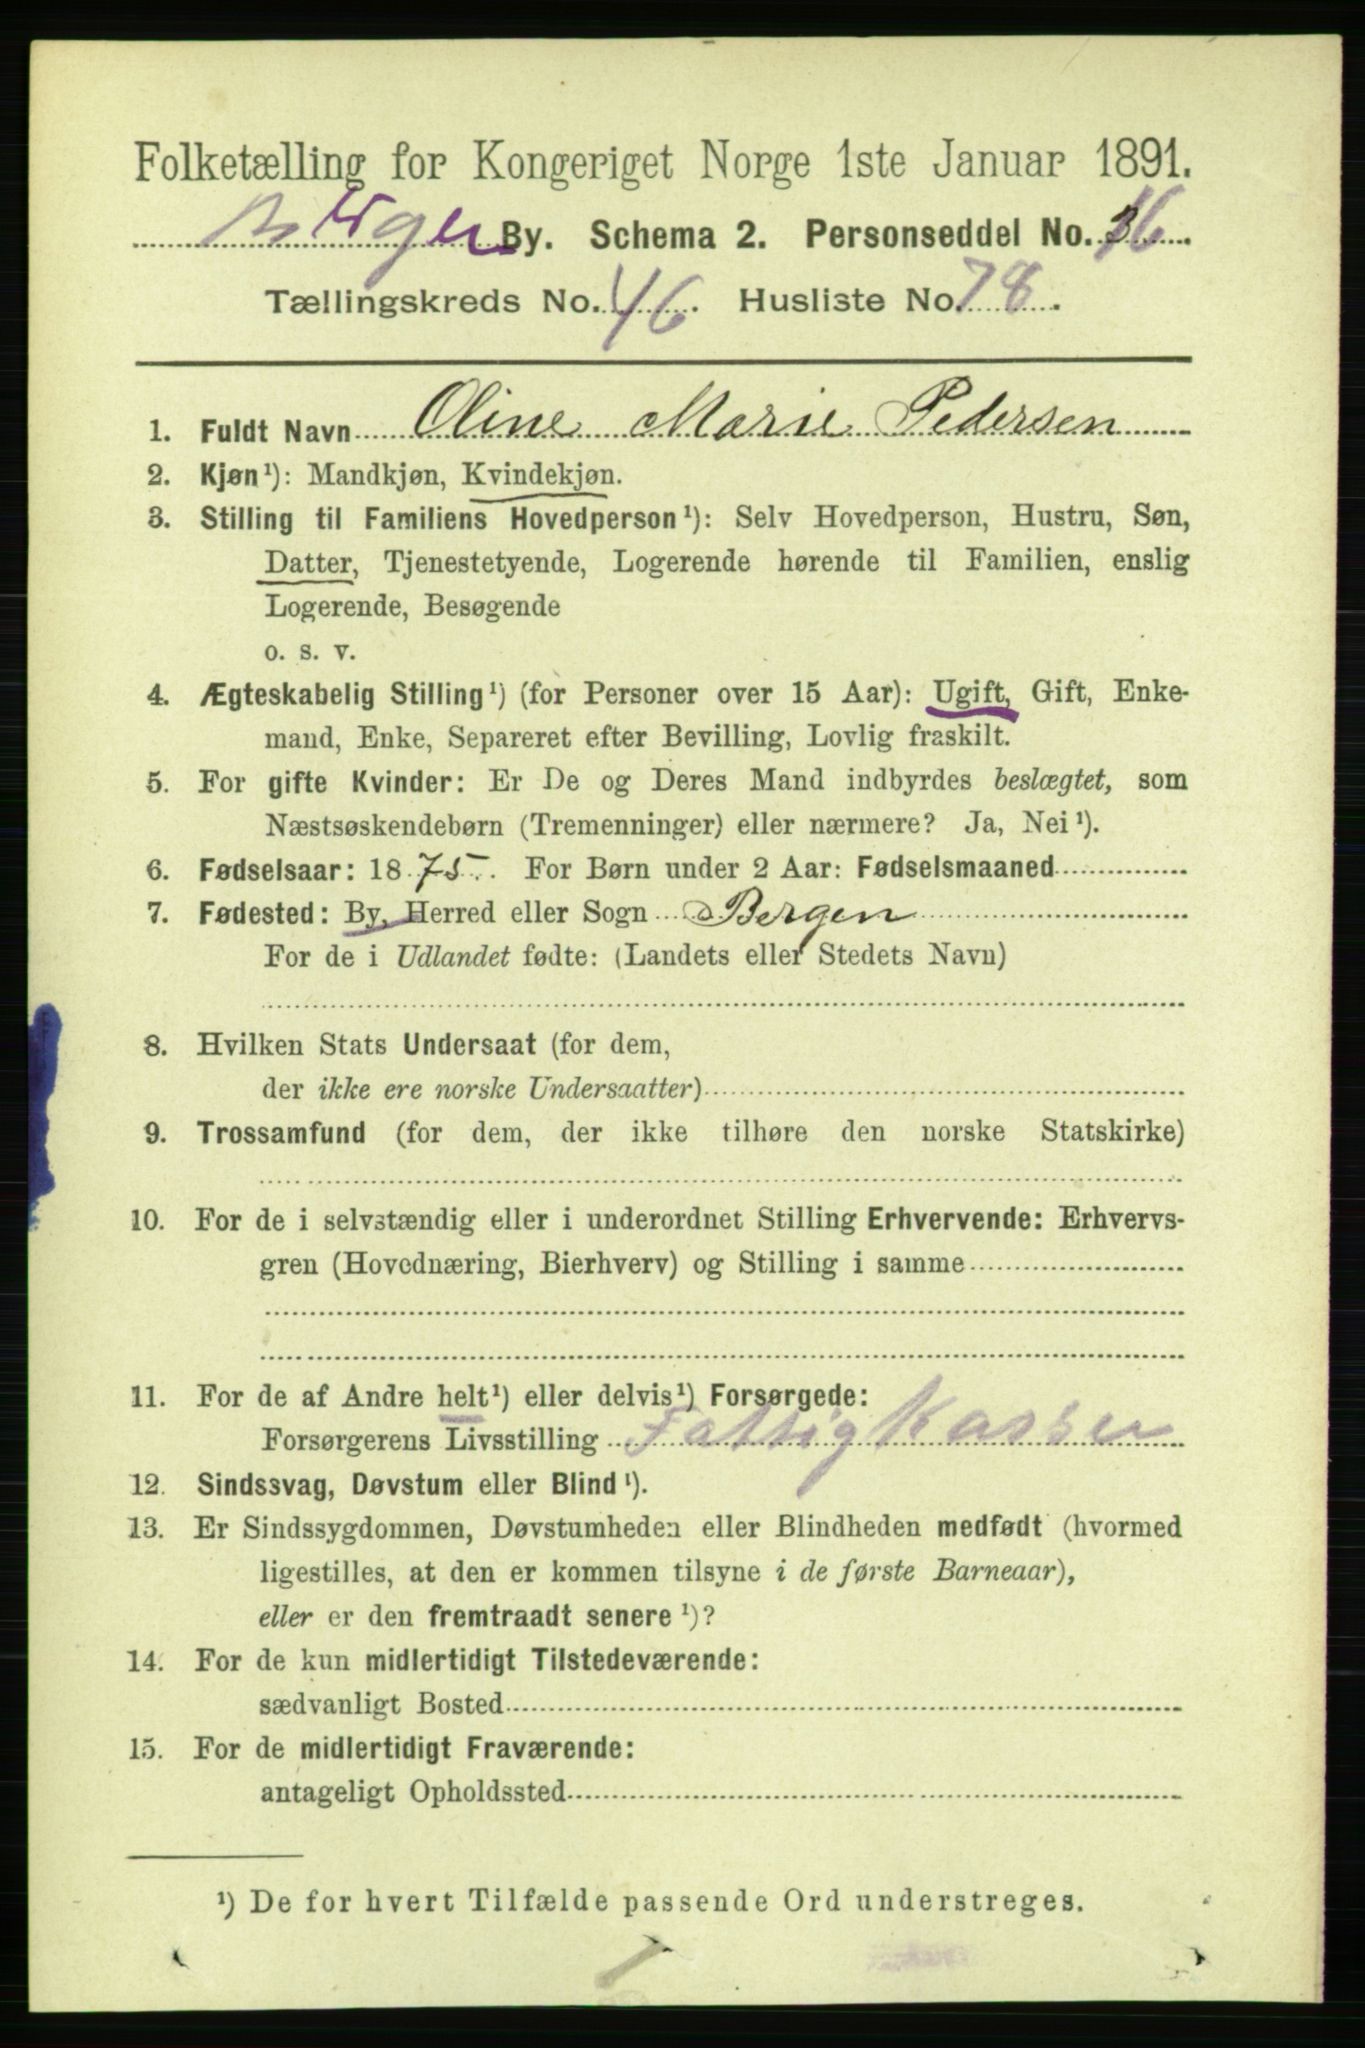 Folketælling for Kongeriget Norge 1ste Januar 1891.
Bergen By. Schema 2. Personseddel No. 16.
Tællingskreds No. 46. Husliste No. 78.
1. Fuldt Navn Oline Marie Pedersen
2. Kjøn¹): Mandkjøn, Kvindekjøn.
3. Stilling til Familiens Hovedperson¹): Selv Hovedperson, Hustru, Søn,
Datter, Tjenestetyende, Logerende hørende til Familien, enslig
Logerende, Besøgende
o. s. v.
4. Ægteskabelig Stilling¹) (for Personer over 15 Aar): Ugift, Gift, Enke-
mand, Enke, Separeret efter Bevilling, Lovlig fraskilt.
5. For gifte Kvinder: Er De og Deres Mand indbyrdes beslægtet, som
Næstsøskendebørn (Tremenninger) eller nærmere? Ja, Nei¹).
6. Fødselsaar: 1875. For Børn under 2 Aar: Fødselsmaaned
7. Fødested: By, Herred eller Sogn Bergen
For de i Udlandet fødte: (Landets eller Stedets Navn)
8. Hvilken Stats Undersaat (for dem,
der ikke ere norske Undersaatter)
9. Trossamfund (for dem, der ikke tilhøre den norske Statskirke)
10. For de i selvstændig eller i underordnet Stilling Erhvervende: Erhvervs-
gren (Hovednæring, Bierhverv) og Stilling i samme
11. For de af Andre helt¹) eller delvis¹) Forsørgede:
Forsørgerens Livsstilling Fattigkassen
12. Sindssvag, Døvstum eller Blind¹).
13. Er Sindssygdommen, Døvstumheden eller Blindheden medfødt (hvormed
ligestilles, at den er kommen tilsyne i de første Barneaar),
eller er den fremtraadt senere¹)?
14. For de kun midlertidigt Tilstedeværende:
sædvanligt Bosted
15. For de midlertidigt Fraværende:
antageligt Opholdssted
¹) De for hvert Tilfælde passende Ord understreges.